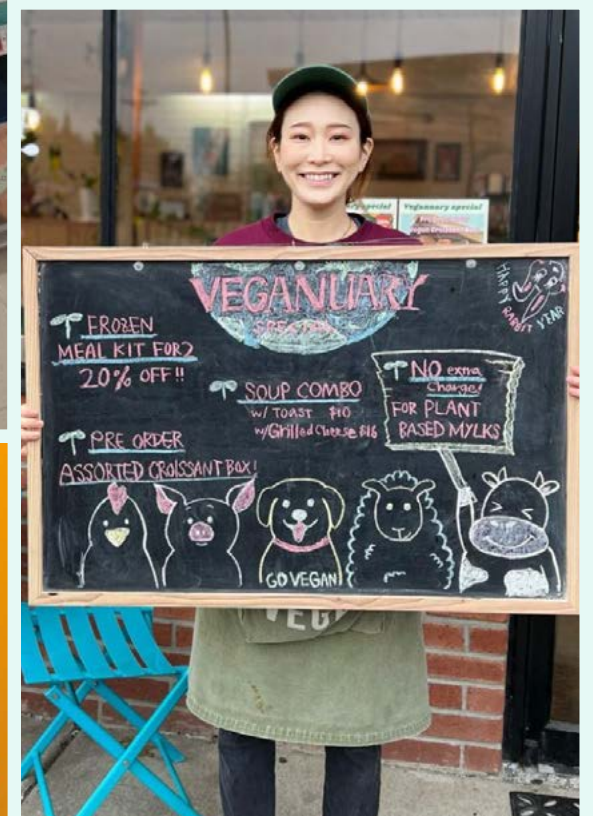 Vegannary special
VEGANUARY
SPECIAL
HAPPY
RABBIT YEAR
FROZEN
MEAL KIT FOR 2
20% OFF!!
SOUP COMBO
W/ TOAST $10
w/Grilled Cheese $16
NO extra
Charge!
FOR PLANT
BASED MYLKS
PRE ORDER
ASSORTED CROISSANT BOX!
GO VEGAN
VEG